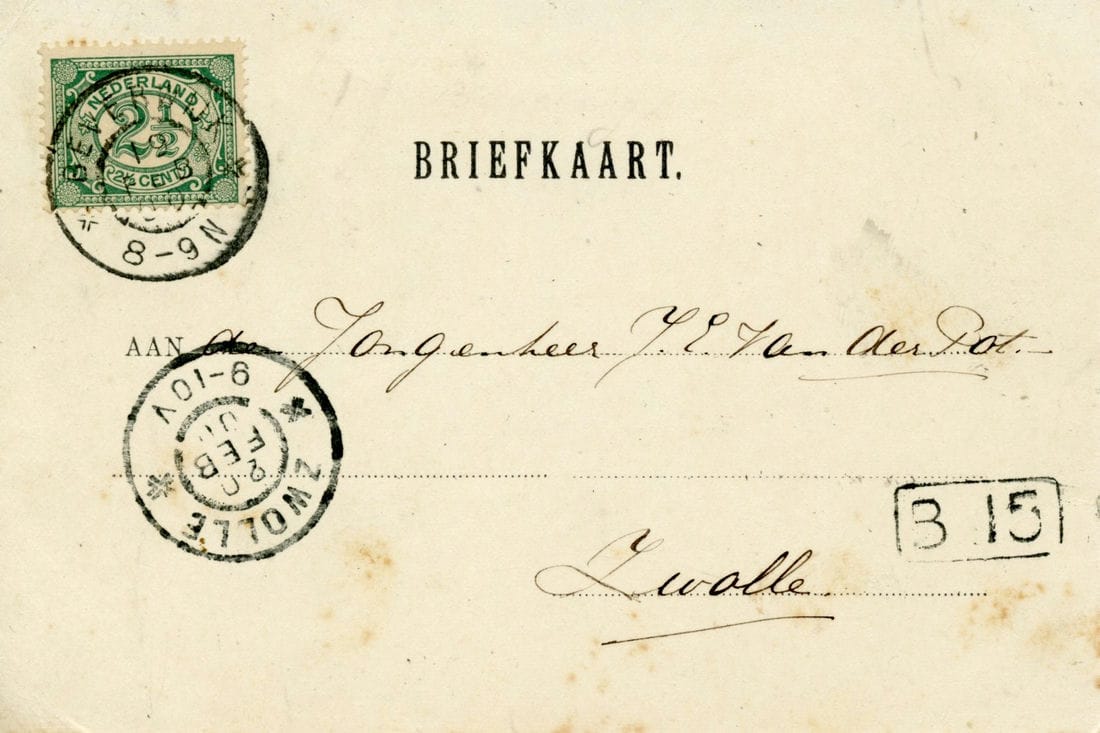 NEDERLAND
2½
2½ CENT
BEVERWIJK
8-9N
BRIEFKAART.
AAN den Jongenheer J. E. Van der Pot.
9-10V
FEB
ZWOLLE
B 15
Zwolle.